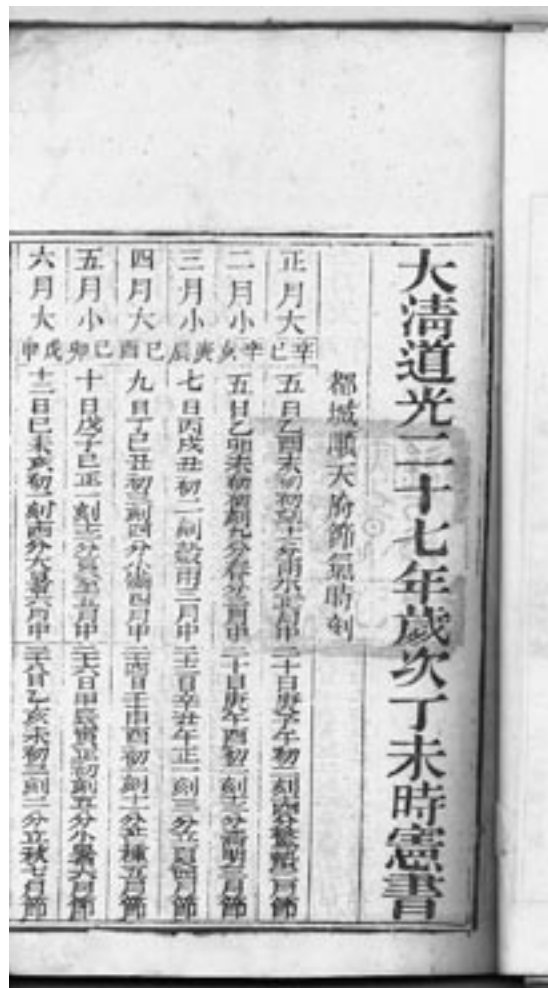 大清道光二十七年歲次丁未時憲書
都城順天府節氣時刻
正月大辛巳五日乙酉未初初刻十三分雨水正月中二十日庚子午初二刻驚蟄二月節
二月小辛亥五日乙卯未初初刻九分春分二月中二十日庚午酉初一刻十三分清明三月節
三月小庚辰七日丙戌丑初二刻穀雨三月中二十二日辛丑午正一刻三分立夏四月節
四月大己酉九日丁巳丑初三刻四分小滿四月中二十四日壬申酉初一刻十一分芒種五月節
五月小己卯十日戊子巳正一刻十三分夏至五月中二十六日甲辰寅正初刻五分小暑六月節
六月大戊申十二日己未亥初一刻四分大暑六月中二十八日乙亥未初二刻二分立秋七月節